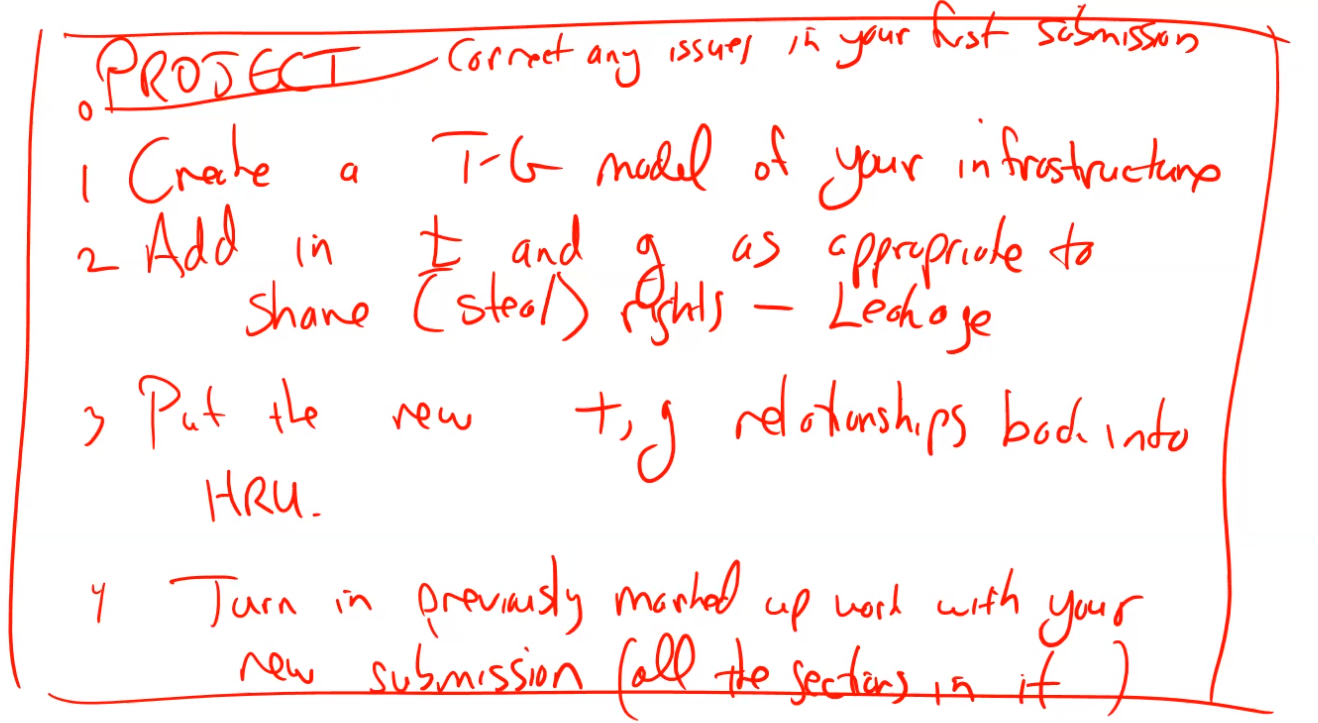 0 PROJECT - Correct any issues in your first submission
1 Create a T-G model of your infrastructure
2 Add in t and g as appropriate to
share (steal) rights - Leakage
3 Put the new t, g relationships back into
HRU.
4 Turn in previously marked up work with your
new submission (all the sections in it)